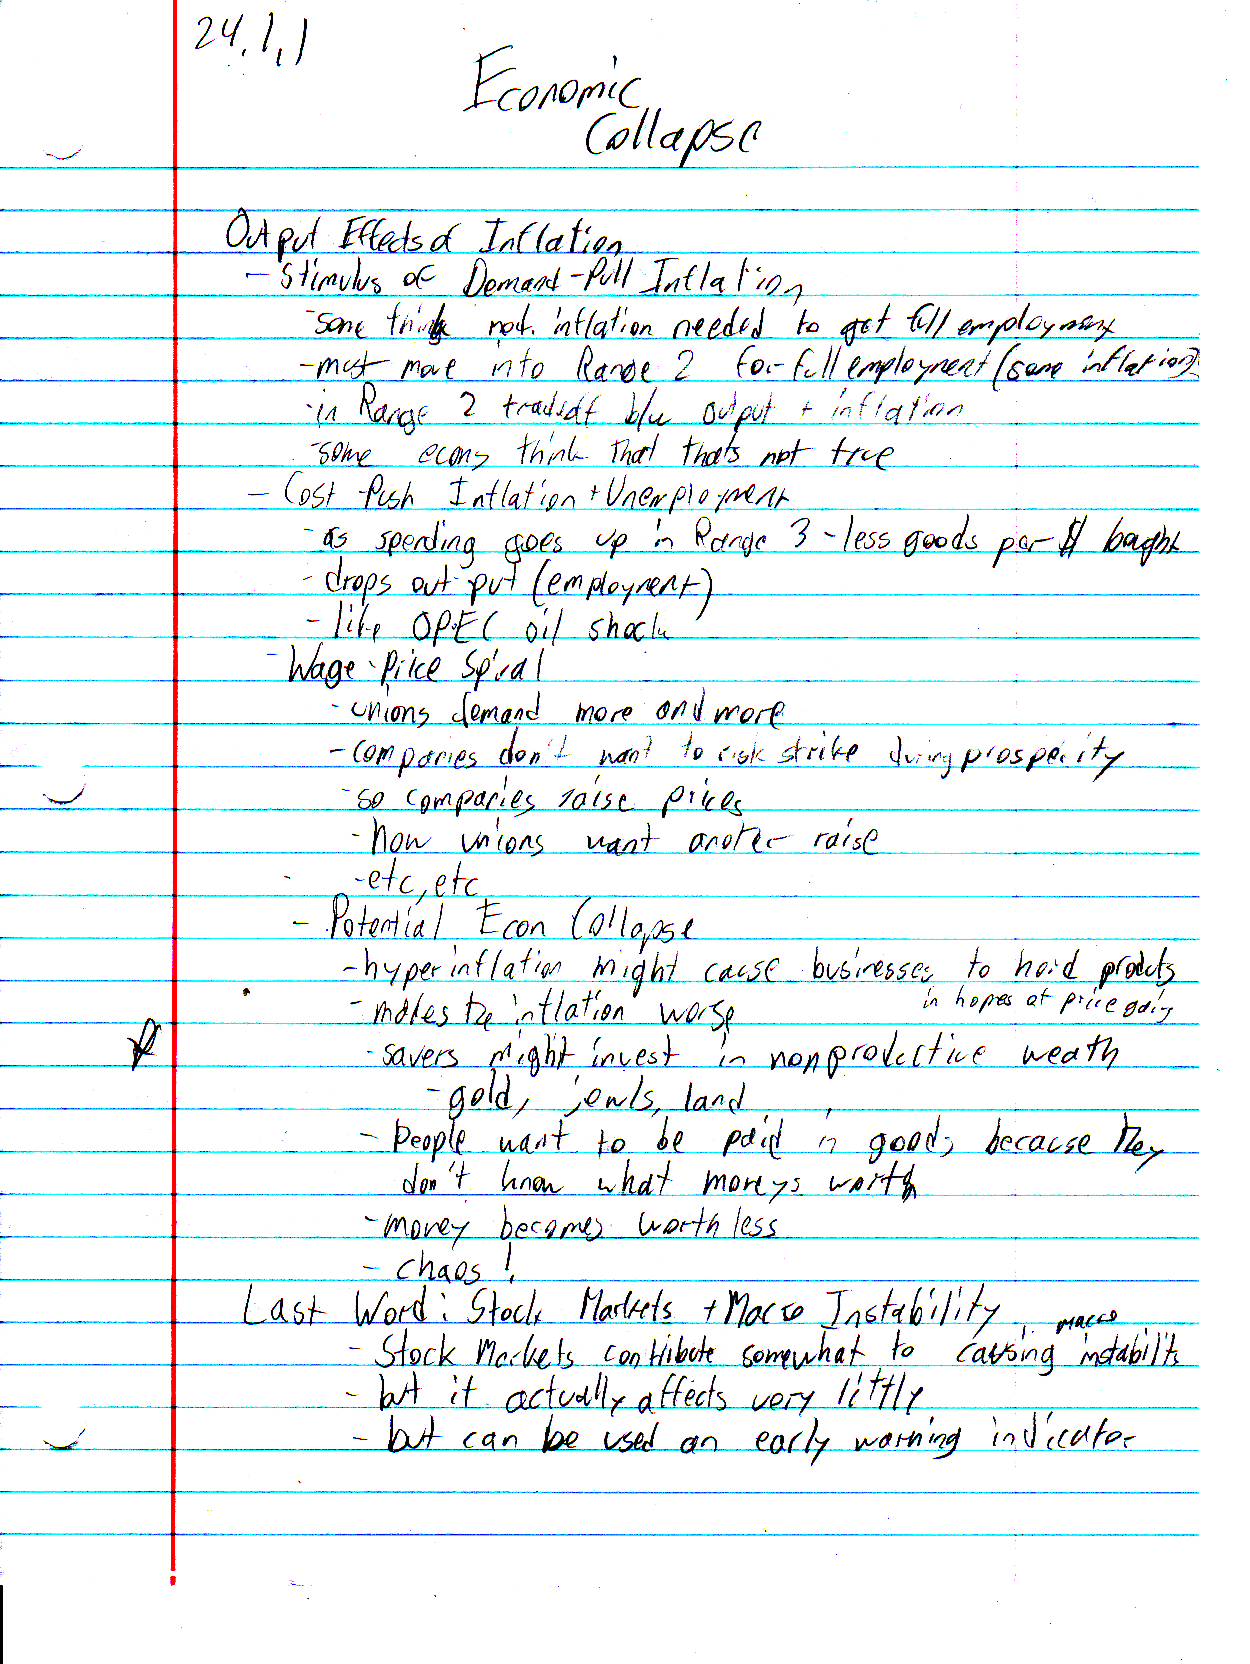 24.1.1
Economic
Collapse
Output Effects of Inflation
- Stimulus of Demand-Pull Inflation
- some think mod. inflation needed to get full employment
- must move into Range 2 for full employment (some inflation)
- in Range 2 tradeoff b/w output + inflation
- some econs think that thats not true
- Cost-Push Inflation + Unemployment
- as spending goes up in Range 3 - less goods per $ bought
- drops output (employment)
- like OPEC oil shock
- Wage-Price Spiral
- unions demand more and more
- companies don't want to risk strike during prosperity
- so companies raise prices
- now unions want another raise
- etc, etc
- Potential Econ Collapse
- hyperinflation might cause businesses to hord products
in hopes of price going
- makes the inflation worse
- savers might invest in nonproductive weath
- gold, jewls, land
- People want to be paid in goods because they
don't know what moneys worth
- money becomes worthless
- chaos!
Last Word: Stock Markets + Macro Instability
- Stock Markets contribute somewhat to causing macro instabilits
- but it actually affects very littly
- but can be used an early warning indicator